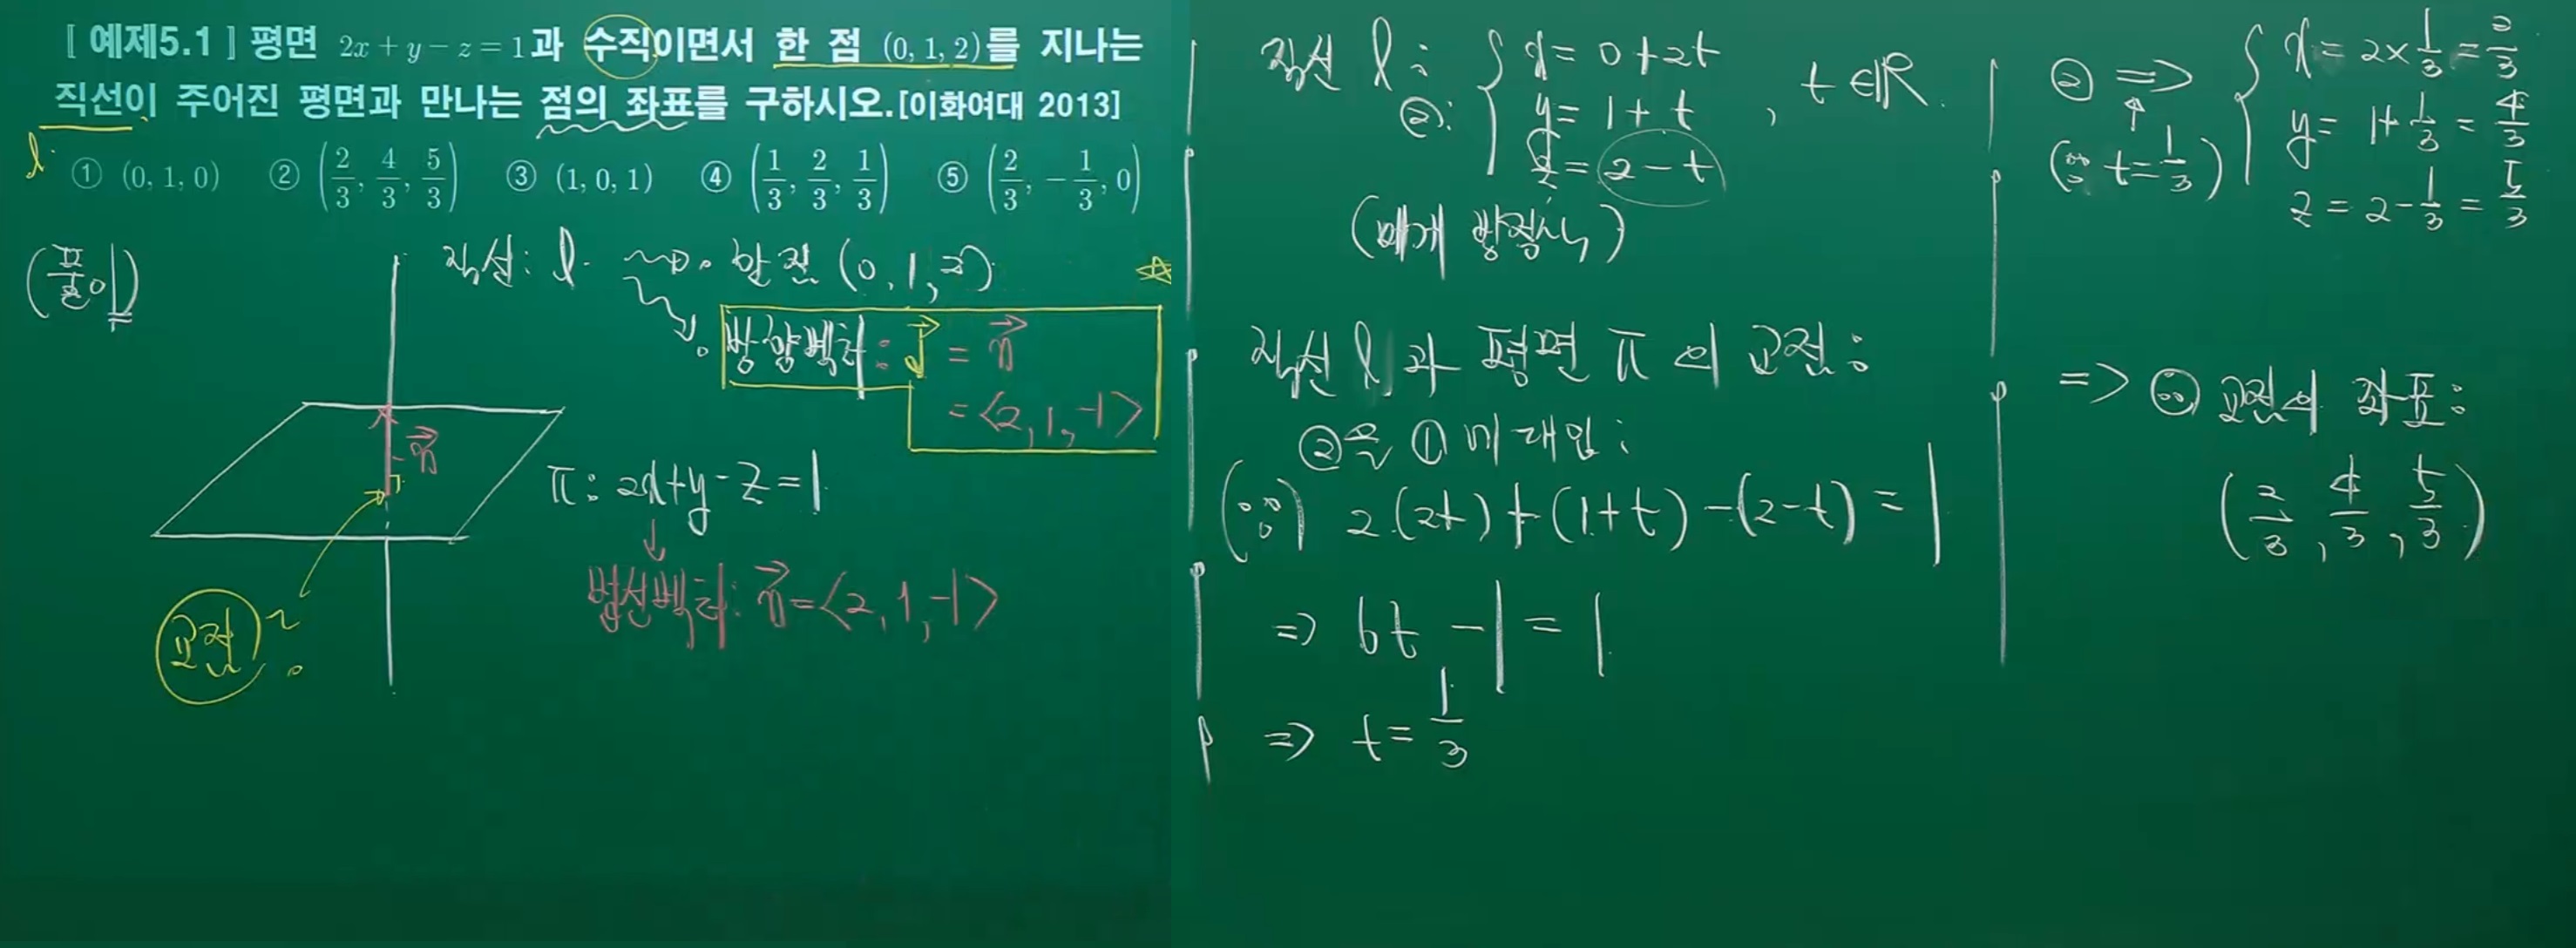 [ 예제5.1 ] 평면 2x + y − z = 1과 수직이면서 한 점 (0, 1, 2)를 지나는
직선이 주어진 평면과 만나는 점의 좌표를 구하시오.[이화여대 2013]
l
① (0, 1, 0) ② (2/3, 4/3, 5/3) ③ (1, 0, 1) ④ (1/3, 2/3, 1/3) ⑤ (2/3, −1/3, 0)
(풀이)
직선: l ⇝ 한 점 (0, 1, 2)
방향벡터: d = n
= <2, 1, −1>
n
π: 2x+y−z=1
법선벡터: n=<2, 1, −1>
교점?
직선 l:
②: x = 0+2t
y = 1+t , t∈R.
z = 2−t
(매개 방정식)
직선 l과 평면 π의 교점:
②을 ①에 대입:
(∵) 2(2t)+(1+t)−(2−t)=1
⇒ 6t −1 = 1
⇒ t = 1/3
② ⇒ x = 2×1/3 = 2/3
(∵ t=1/3) y = 1+1/3 = 4/3
z = 2−1/3 = 5/3
⇒ ∴ 교점의 좌표:
(2/3, 4/3, 5/3)